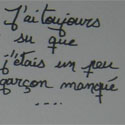 J'ai toujours
su que
j'étais un peu
garçon manqué
....